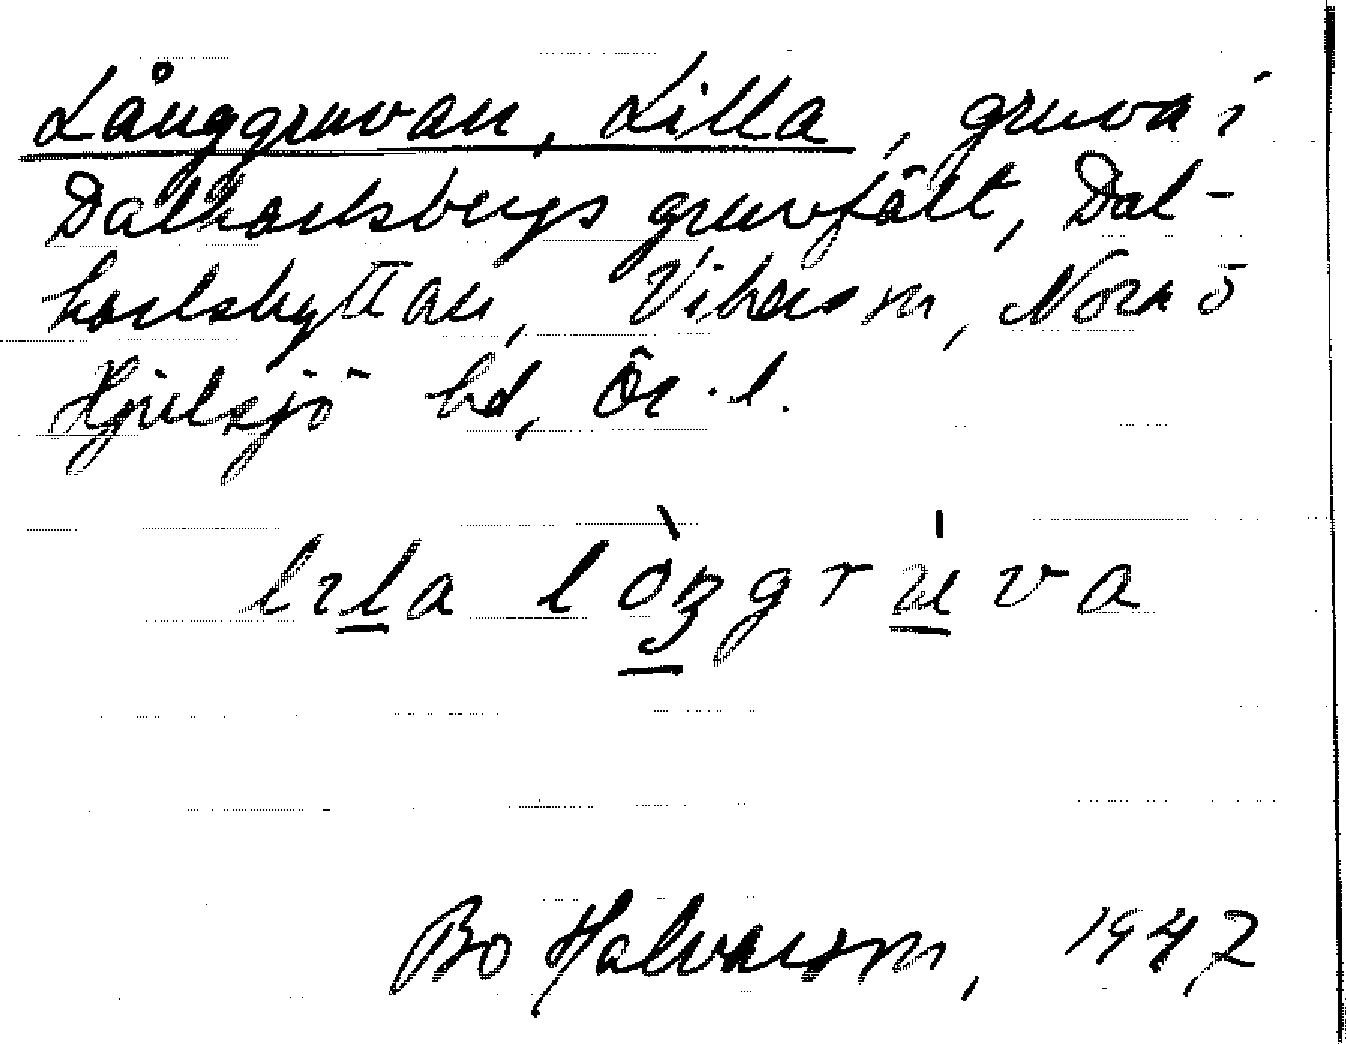 Långgruvan, Lilla, gruva i
Dalkarlsbergs gruvfält, Dal-
karlshyttan, Vikers sn, Nora o
Hjulsjö hd, Ör. l.
lıla lòŋgrúva
Bo Halvarson, 1947